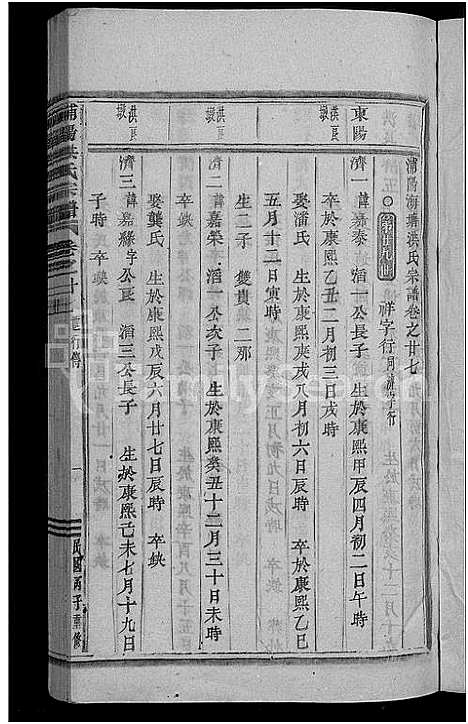 浦陽海塘洪氏宗譜卷之廿七
第廿九世 祥字行
東陽
濟一 諱嘉泰 滔一公長子 生於康熙甲辰四月初二日午時
卒於康熙乙丑二月初三日戌時
洪良
娶潘氏 生於康熙庚戌八月初六日辰時 卒於康熙乙巳
五月十二日寅時
生二子 雙貴 二那
洪良
濟二 諱嘉榮 滔一公次子 生於康熙癸丑十二月三十日未時
卒缺
娶龔氏 生於康熙戊辰六月廿七日辰時 卒缺
洪良
濟三 諱嘉緣 字公亮 滔三公長子 生於康熙己未七月十九日
子時 卒
浦陽洪氏宗譜 卷之廿
龍行傳
一
民國丙子重修